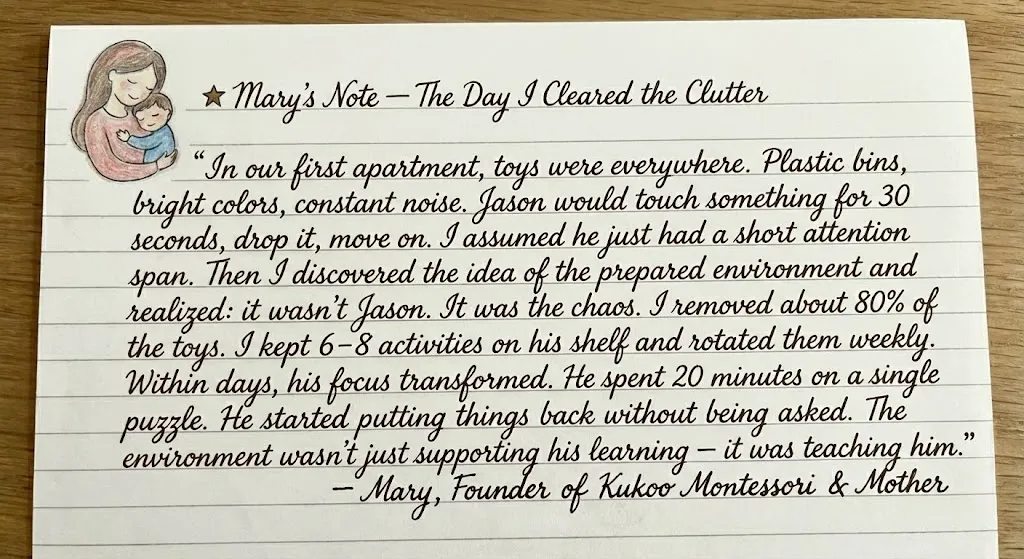 ★ Mary's Note – The Day I Cleared the Clutter
"In our first apartment, toys were everywhere. Plastic bins,
bright colors, constant noise. Jason would touch something for 30
seconds, drop it, move on. I assumed he just had a short attention
span. Then I discovered the idea of the prepared environment and
realized: it wasn't Jason. It was the chaos. I removed about 80% of
the toys. I kept 6–8 activities on his shelf and rotated them weekly.
Within days, his focus transformed. He spent 20 minutes on a single
puzzle. He started putting things back without being asked. The
environment wasn't just supporting his learning – it was teaching him."
– Mary, Founder of Kukoo Montessori & Mother